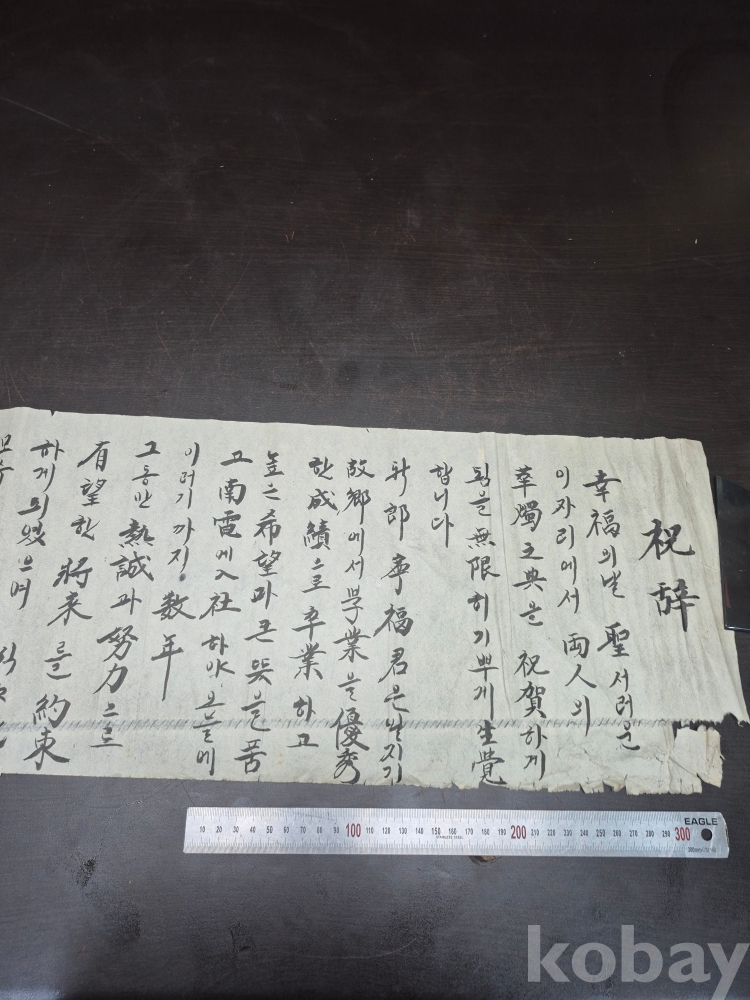 祝辞
幸福의날 聖서러운
이자리에서 両人의
華燭之典을 祝賀하게
됨을 無限히기뿌게生覺
합니다
新郎 寧福君은 일지기
故鄕에서 學業을 優秀
한 成績으로 卒業하고
높은 希望과 큰 뜻을 품
고 南電에 入社하야 오늘에
이러기까지 数年
그동안 熱誠과 努力으로
有望한 將来를 約束
하게되였으며
EAGLE
10 20 30 40 50 60 70 80 90 100 110 120 130 140 150 160 170 180 190 200 210 220 230 240 250 260 270 280 290 300
STAINLESS STEEL
kobay